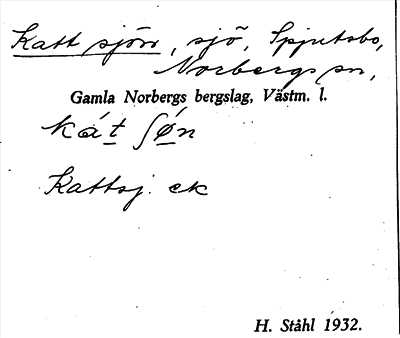 Kattsjön, sjö, Spjutsbo,
Norbergs sn,
Gamla Norbergs bergslag, Västm. l.
kát ʃø̀n
Kattsj. ek
H. Ståhl 1932.